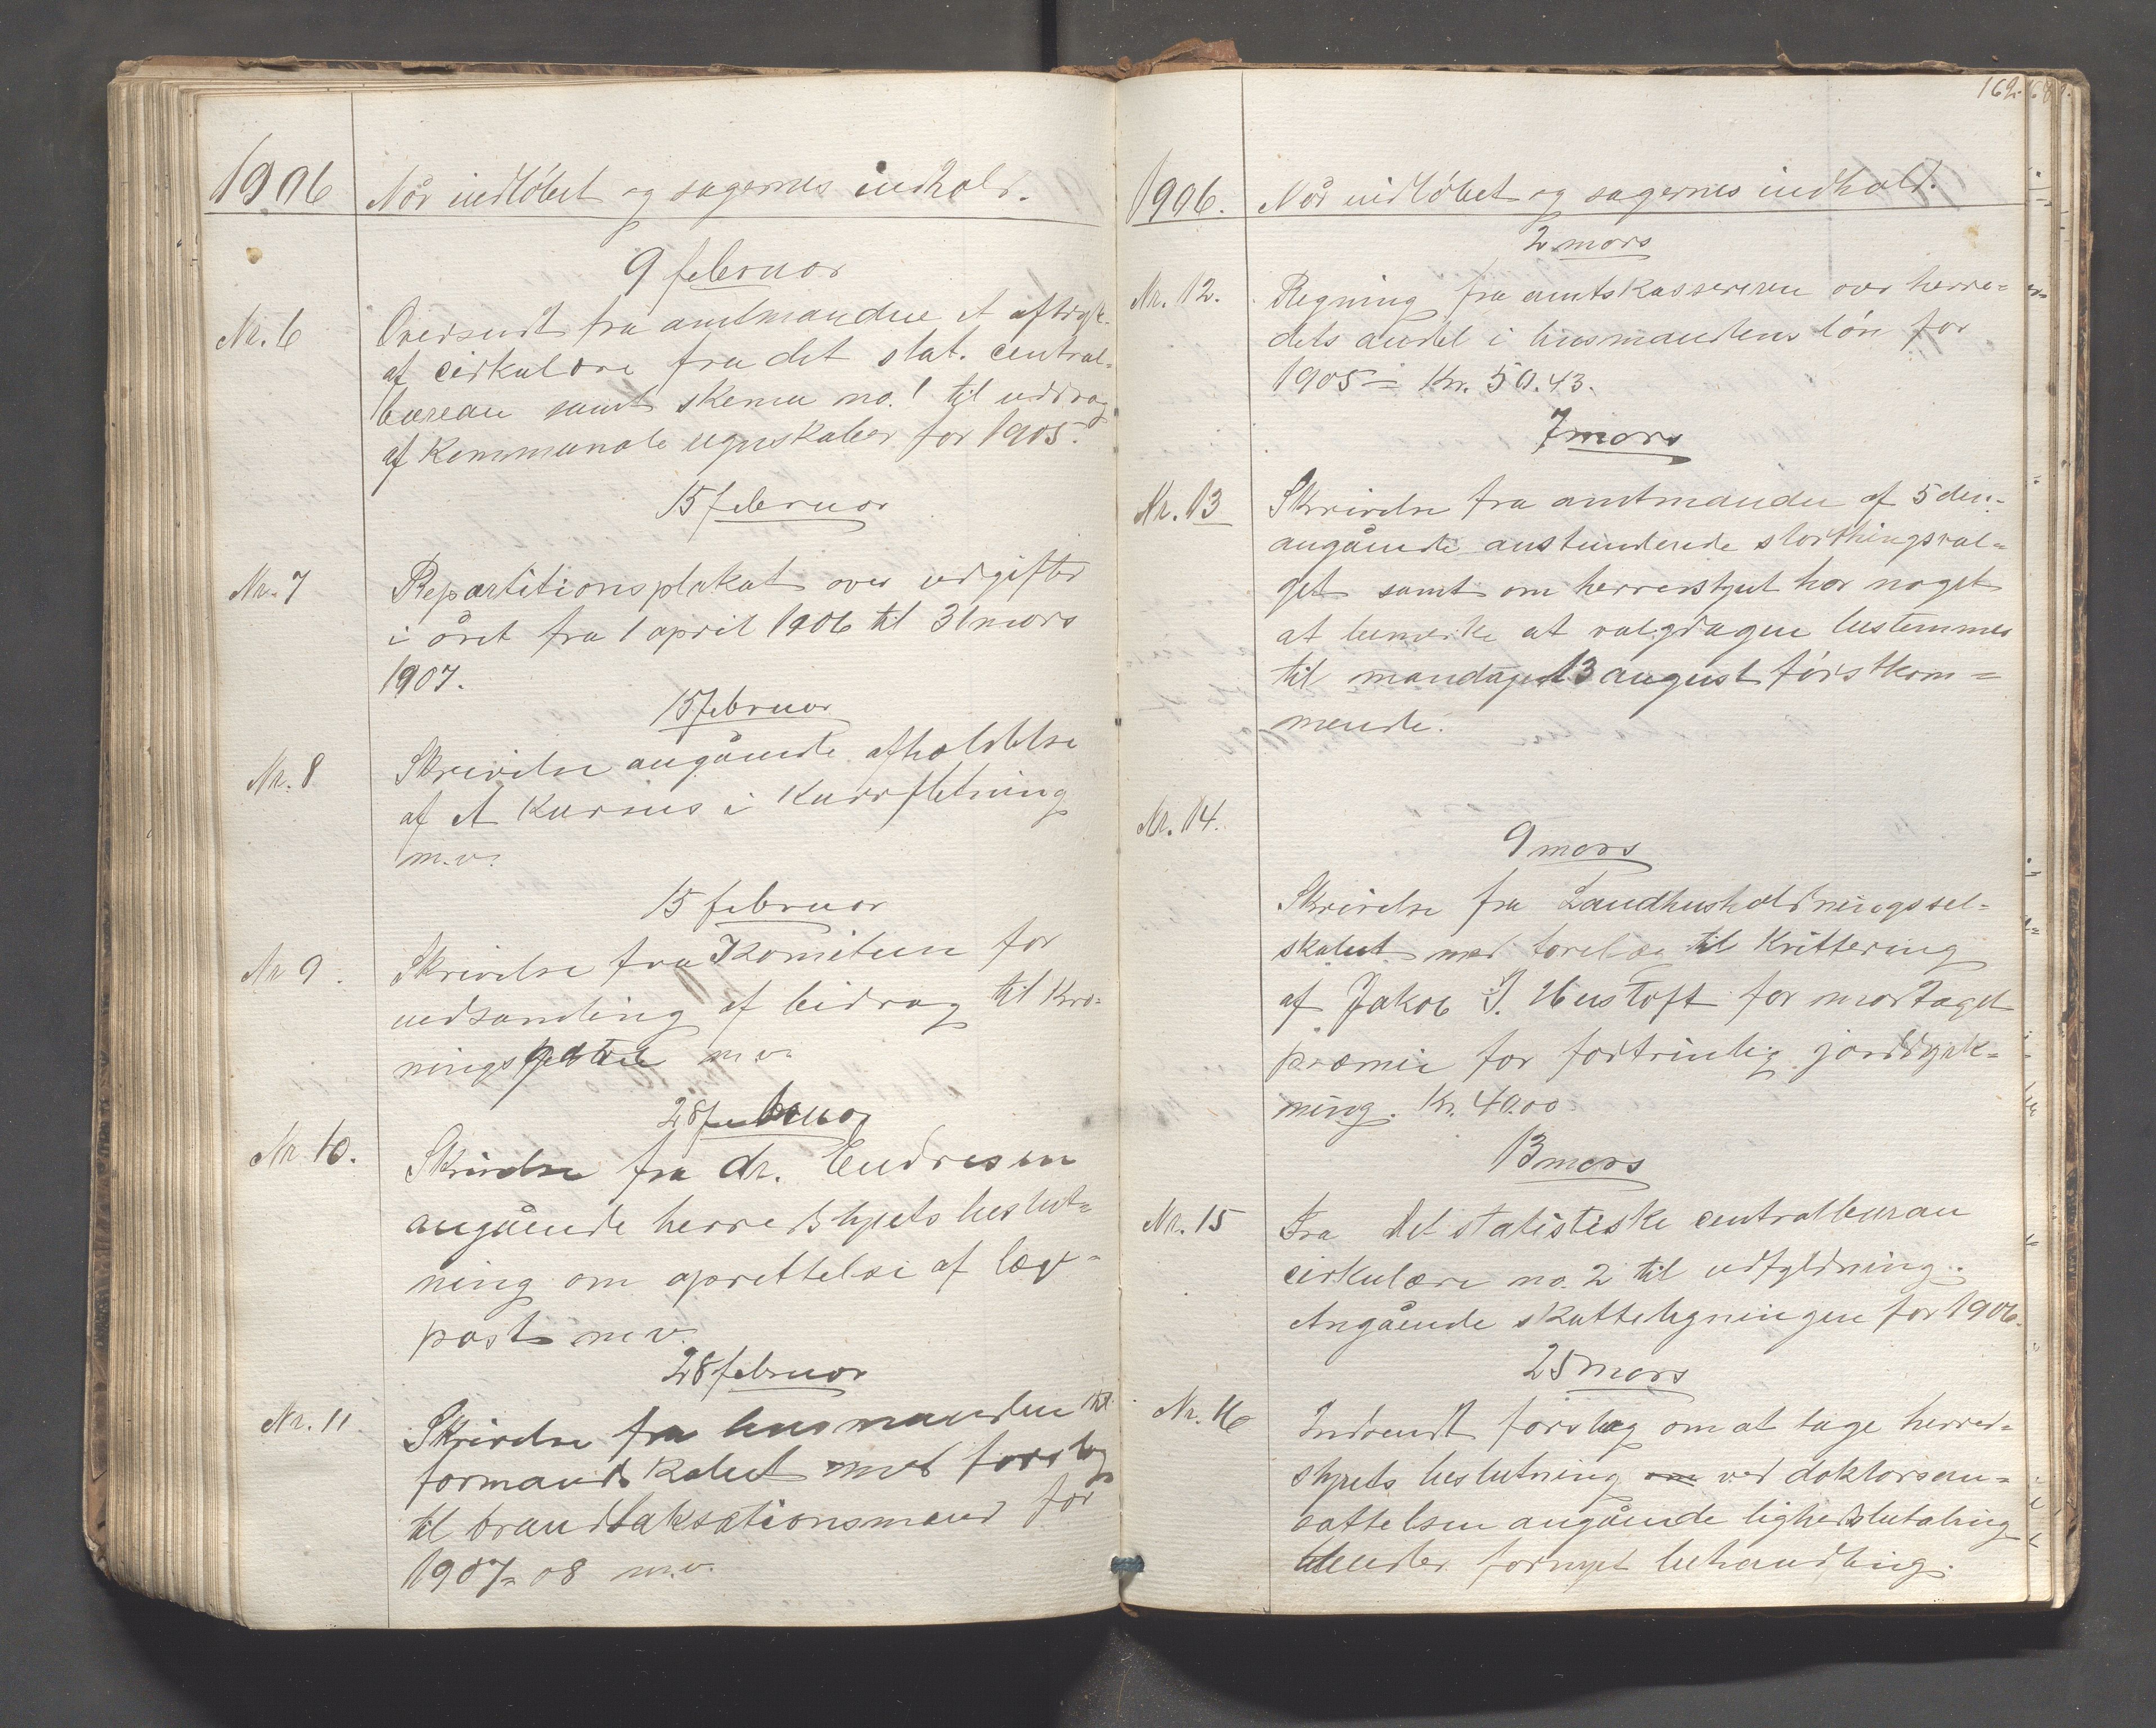 1906
Når indløbet og sagernes indhold.
9 februar
Nr. 6
Oversendt fra amtmanden et aftryk
af cirkulære fra det stat. central-
bureau samt skema no. 1 til uddrag
af kommunale regnskaber for 1905.
15 februar
Nr. 7
Repartitionsplakat over udgifter
i året fra 1 april 1906 til 31 mars
1907.
15 februar
Nr. 8
Skrivelse angående afholdelse
af et kursus i kurvfletning
m.v.
15 februar
Nr 9.
Skrivelse fra Komiteen for
indsamling af bidrag til kro-
ningsgave m.v.
28 februar
Nr 10.
Skrivelse fra dr. Endresen
angående herredstyrets beslut-
ning om oprettelse af læge-
post m.v.
28 februar
Nr. 11
Skrivelse fra lensmanden til
formandskabet med forslag
til brandtaksationsmænd for
1907-08 m.v.
162.
1906.
Når indløbet og sagernes indhold.
2 mars
Nr. 12.
Regning fra amtskassereren over herre-
dets andel i lensmandens løn for
1905 = Kr. 50.43.
7 mars
Nr. 13
Skrivelse fra amtmanden af 5 den-
angående anstundende storthingsval-
get samt om herredstyret har noget
at bemerke at valgdagen bestemmes
til mandag 13 august førstkom-
mende.
Nr. 14.
9 mars
Skrivelse fra Landhusholdningssel-
skabet med forelæg til kvittering
af Jakob S. Hustoft for modtaget
præmie for fortrinlig jorddyrk-
ning. Kr. 40.00
13 mars
Nr. 15
Fra det statistiske centralbureau
cirkulære no. 2 til udfyldning.
Angående skatteligningen for 1906.
25 mars
Nr. 16
Indsendt forslag om at tage herred-
styrets beslutning om ved doktorsan-
sættelsen angående lighedsbetaling
under fornyet behandling.